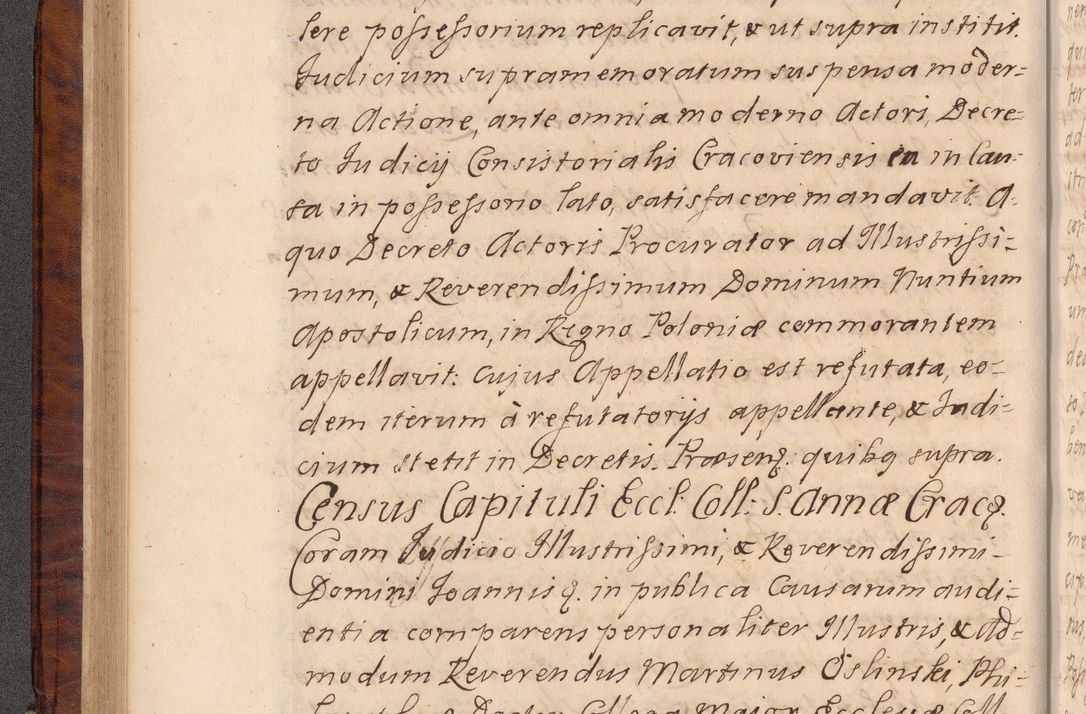 lere possessorium replicavit, & ut supra institit.
Judicium supramemoratum suspensa moder=
na Actione, ante omnia moderno Actori, Decre=
to Judicij Consistorialis Cracoviensis in Cau=
sa in possessorio lato, satisfacere mandavit. A.
quo Decreto Actoris Procurator ad Illustrissi=
mum, & Reverendissimum Dominum Nuntium
Apostolicum, in Regno Poloniæ commorantem
appellavit: cujus Appellatio est refutata, eo=
dem iterum à refutatorijs appellante, & Judi=
cium stetit in Decretis. Præsenq. quibq supra.
Census Capituli Eccl: Coll: S. Annæ Cracq.
Coram Judicio Illustrissimi, & Reverendissimi=
Domini Joannis q. in publica Causarum audi=
entia comparens personaliter Illustris, & Ad=
modum Reverendus Martinus Oslinski, Phi=
Doctor Major Ecclesiæ Coll